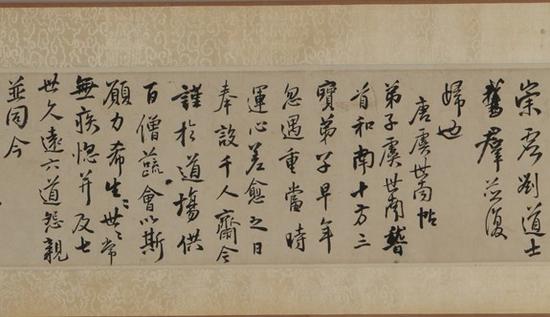 崇虛劉道士
鵞羣並復
歸也
唐虞世南帖
弟子虞世南稽
首和南十方三
寶弟子早年
忽遇重當時
運心差愈之日
奉設千人齋今
謹於道塲供
百僧蔬會以斯
願力希生〻世〻常
無疾惱并及七
世久遠六道怨親
並同今